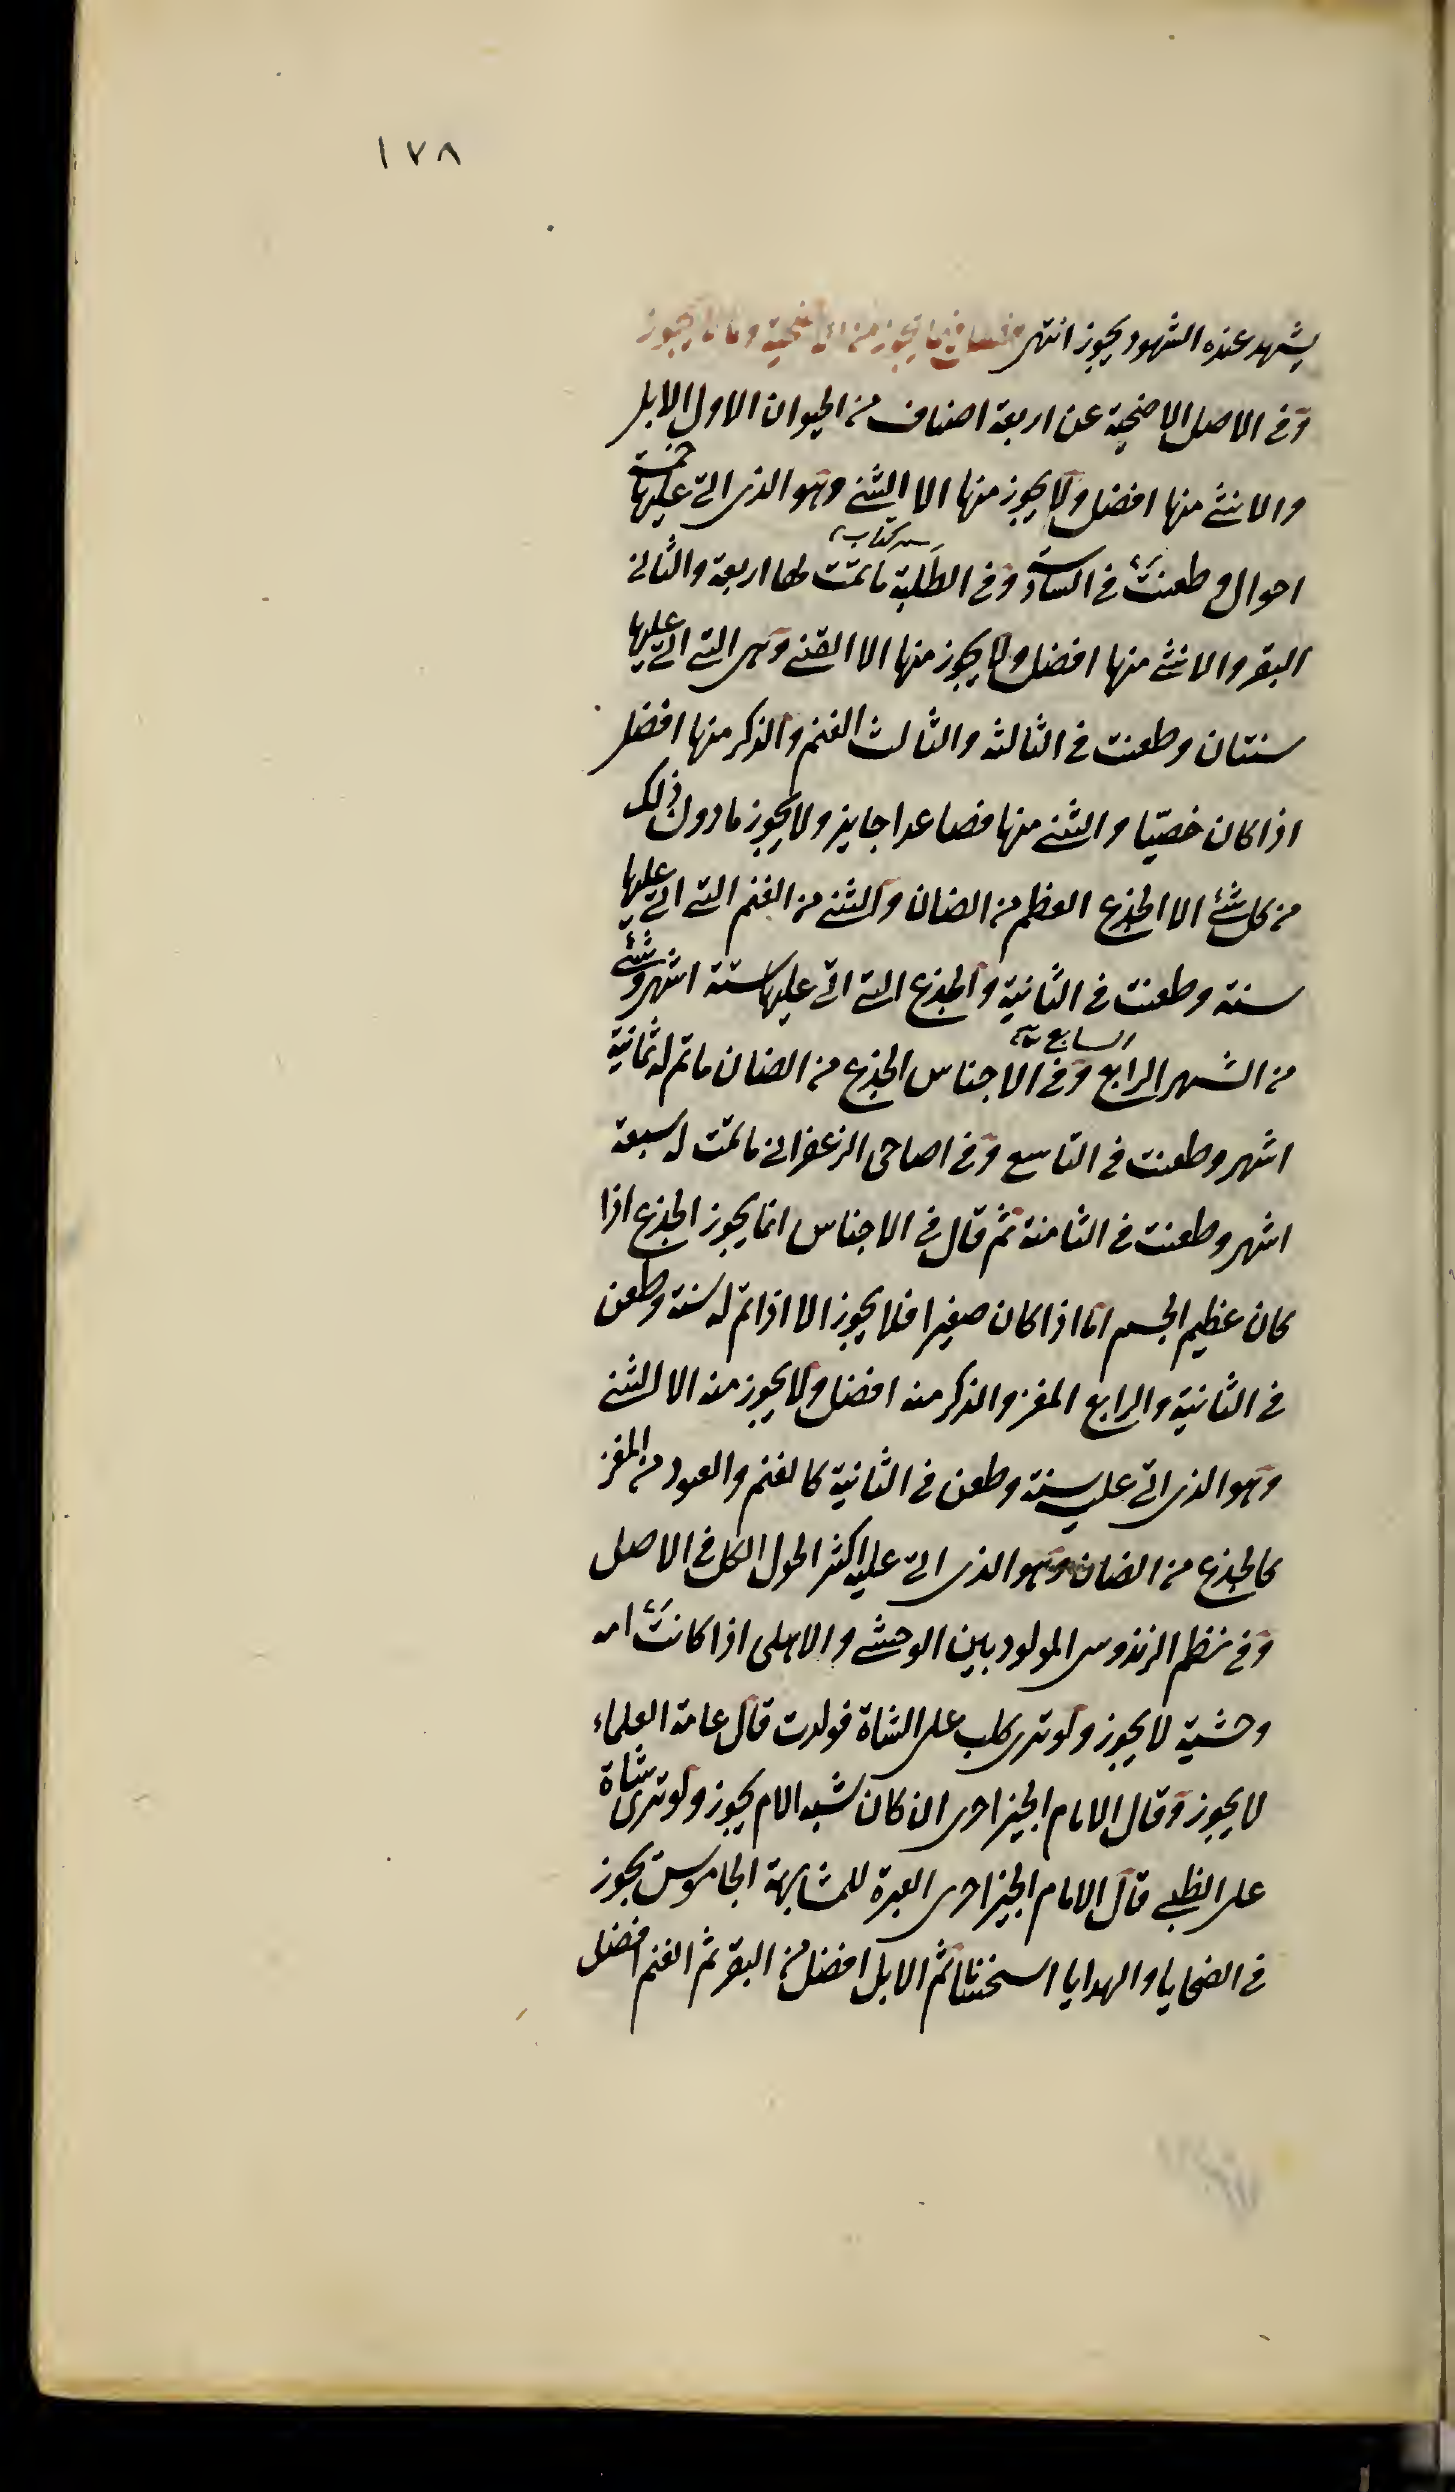 ١٧٨
يشهد عنده الشهود يجوز انتهى فصل فيما يجوز من الاضحية وما لا يجوز
وفى الاصل الاضحية عن اربعة اصناف من الحيوان الاول الابل
والانثى منها افضل ولا يجوز منها الا الثنى وهو الذى اتى عليها خمسة
احوال وطعنت فى السادسة وفى الطلبة ما تمت لها اربعة والثانى
اسم كتاب
البقر والانثى منها افضل ولا يجوز منها الا الثنى وهى التى اتى عليها
سنتان وطعنت فى الثالثة والثالث الغنم والذكر منها افضل
اذا كان خصيّا والثنى منها فصاعدا جايز ولا يجوز ما دون ذلك
من كل شئ الا الجذع العظم من الضان والثنى من الغنم التى اتى عليها
سنة وطعنت فى الثانية والجذع التى اتى عليها ستة اشهر وشئ
من الشهر الرابع وفى الاجناس الجذع من الضان ما تم له ثمانية
السابع
اشهر وطعنت فى التاسع وفى اضاحى الزعفرانى ما تمت له سبعة
اشهر وطعنت فى الثامنة ثم قال فى الاجناس انما يجوز الجذع اذا
كان عظيم الجسم اما اذا كان صغيرا فلا يجوز الا اذا تم له سنة وطعن
فى الثانية والرابع المعز والذكر منه افضل ولا يجوز منه الا الثنى
وهو الذى اتى عليه سنة وطعن فى الثانية كالغنم والعتود من المعز
كالجذع من الضان وهو الذى اتى عليه اكثر الحول الكل فى الاصل
وفى نظم الزندوسى المولود بين الوحشى والاهلى اذا كانت امه
وحشية لا يجوز ولو نزى كلب على الشاة فولدت قال عامة العلماء
لا يجوز وقال الامام الخيزاخزى ان كان شبه الام يجوز ولو نزى شاة
على الظبى قال الامام الخيزاخزى العبرة للمشابهة الجاموس يجوز
فى الضحايا والهدايا استحسانا ثم الابل افضل من البقر ثم الغنم افضل